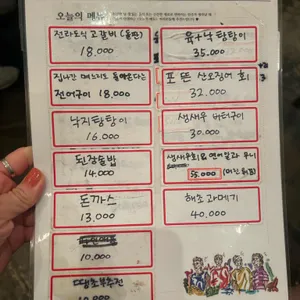 오늘의 메뉴
전라도식 고갈비 (돌판)
18.000
집나간 며느리도 돌아온다는
전어구이 18,000
낙지탕탕이
16.000
된장술밥
14.000
돈까스
13,000
10,000
땡초부추전
육+낙 탕탕이
35.000
포 뜬 산오징어 회
32.000
생새우 버터구이
30.000
생새우회 & 연어알과 우니
55.000
해초과메기
40,000